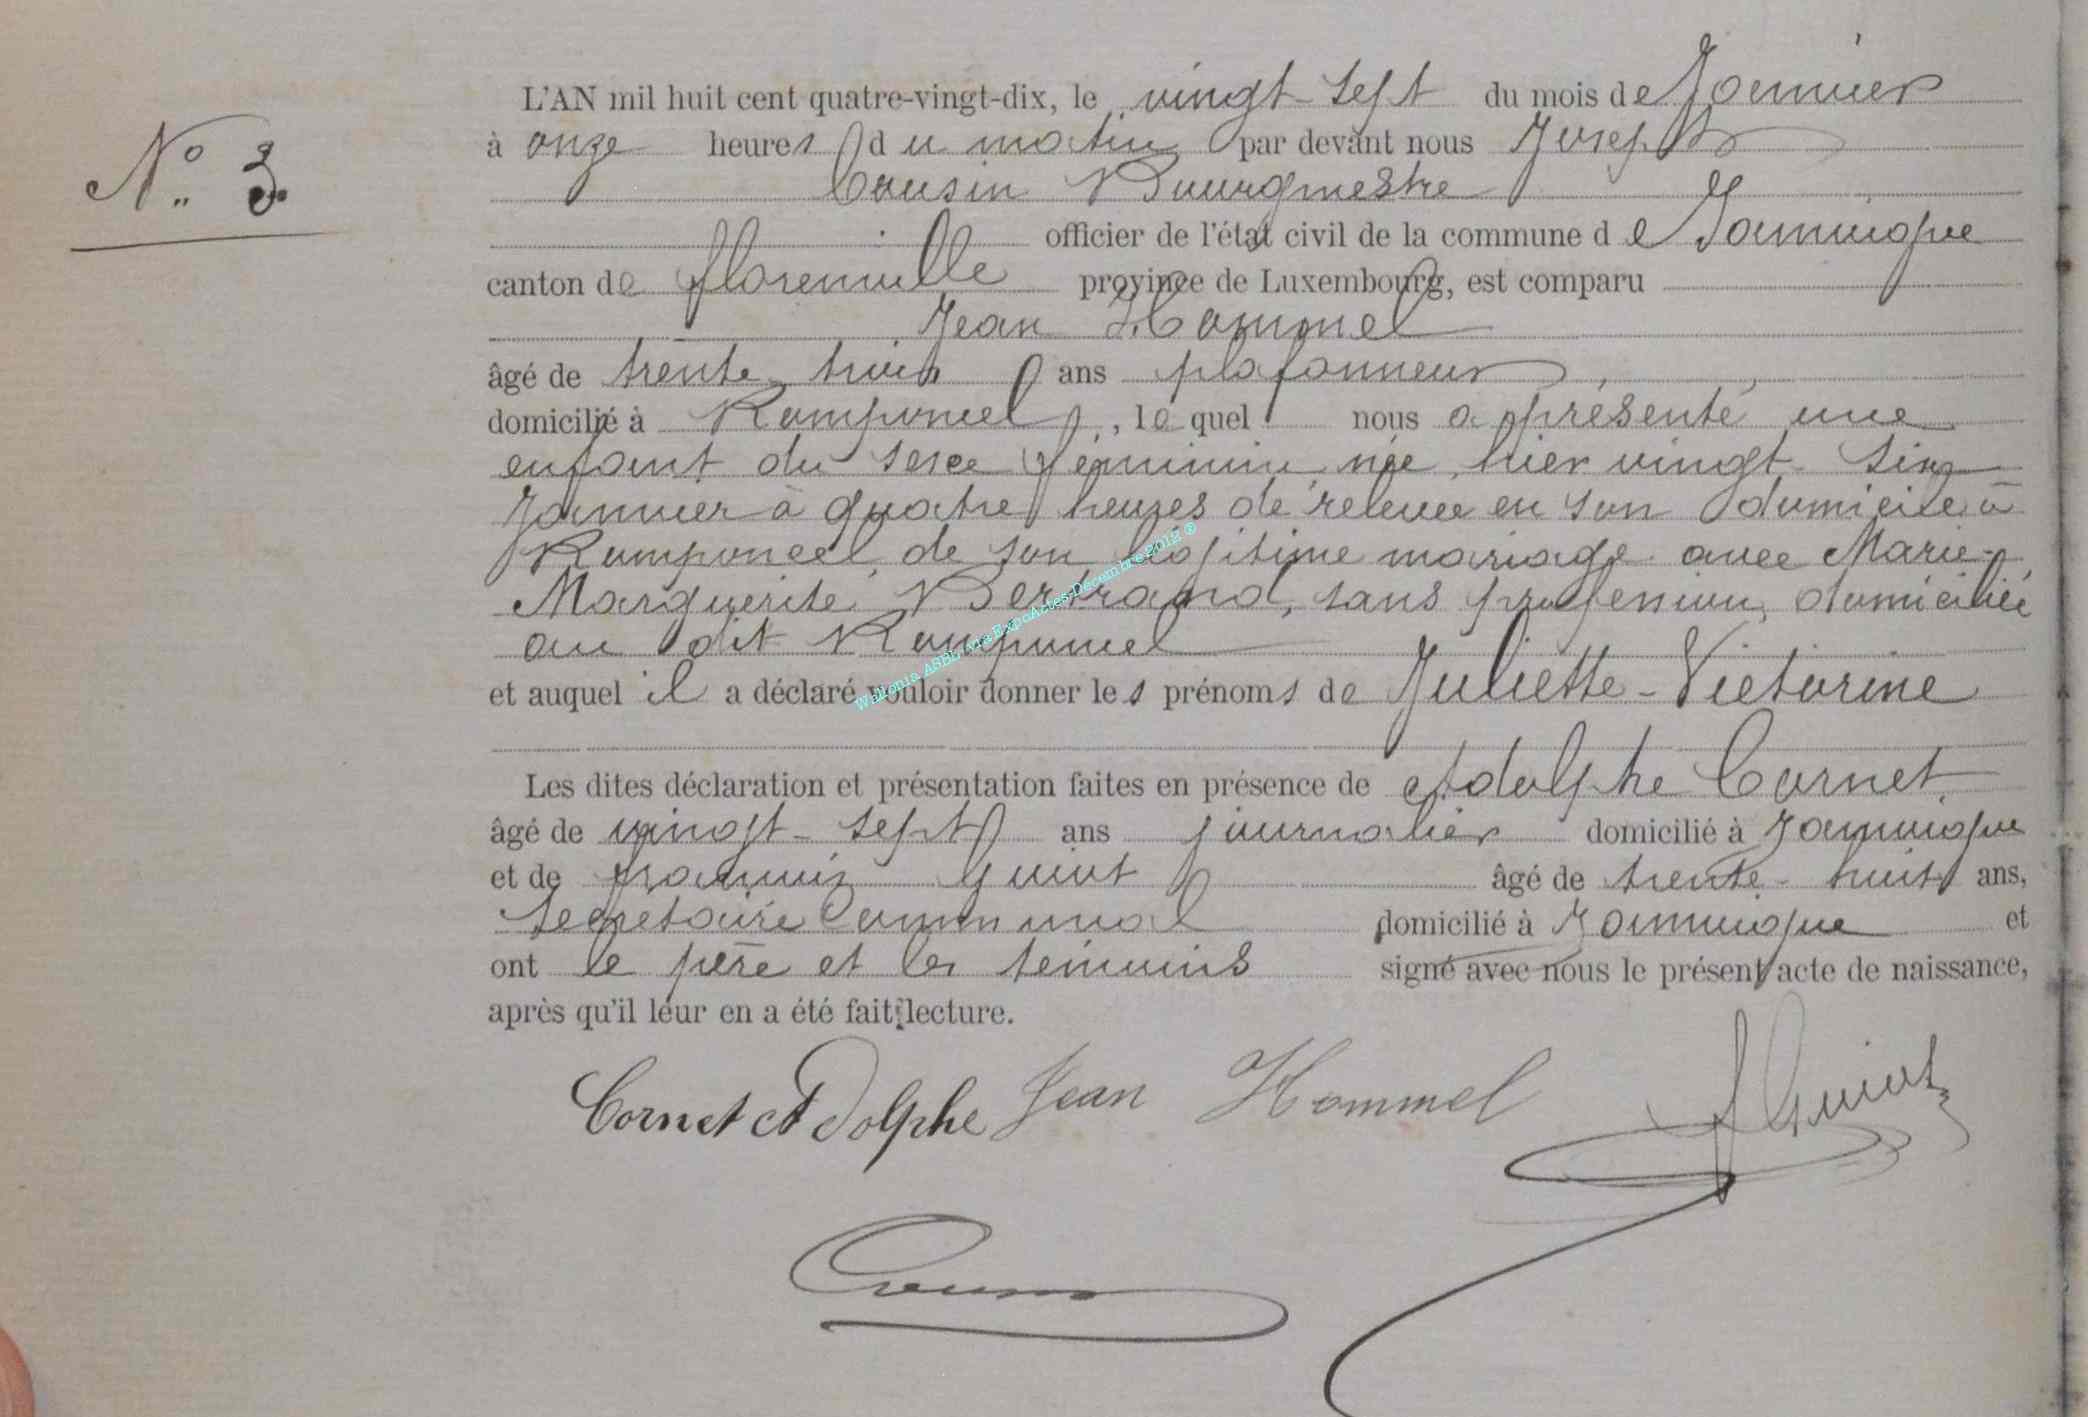 L'AN mil huit cent quatre-vingt-dix, le vingt-sept du mois de Janvier
N° 3.
à onze heures du matin par devant nous Joseph
Cousin Bourgmestre
officier de l'état civil de la commune de Jamoigne
canton de florenville province de Luxembourg, est comparu
Jean Hommel
âgé de trente trois ans plafonneur
domicilié à Romponcel, lequel nous a présenté une
enfant du sexe féminin née hier vingt-six
Janvier à quatre heures de relevée en son domicile à
Romponcel de son légitime mariage avec Marie-
Marguerite Bertrand, sans profession, domiciliée
au dit Romponcel
et auquel il a déclaré vouloir donner les prénoms de Juliette-Victorine
Wallonia ASBL Avra ExpoActes-Décembre 2012 ®
Les dites déclaration et présentation faites en présence de Adolphe Cornet
âgé de vingt-sept ans journalier domicilié à Jamoigne
et de françois Guiot âgé de trente-huit ans,
secrétaire Communal domicilié à Jamoigne et
ont le père et les témoins signé avec nous le présent acte de naissance,
après qu'il leur en a été fait lecture.
Cornet Adolphe Jean Hommel F Guiot
Cousin